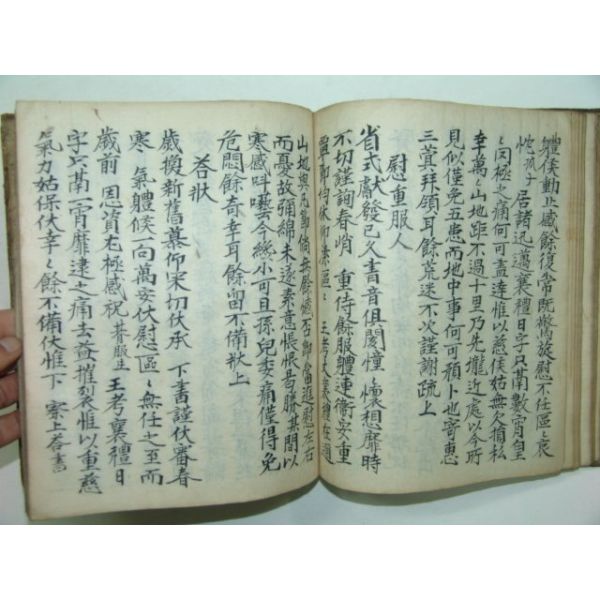 體侯動止感餘復常旣慘旋慰不任區〻哀
居諸迅邁襄禮日字只隔數宵皇
〻罔極之痛何可盡達惟以慈侯姑無欠損私
幸萬〻山地距不過十里乃先壠近處以今所
見似僅免五患而地中事何可預卜也寄惠
三萁拜領耳餘荒迷不次謹謝疏上
慰重服人
省式獻發已久書音俱閡憧〻懷想靡時
不切謹詢春峭 重侍餘服體連衛安重
區〻 王考丈襄禮在邇
山地與凡節倘無餘憾否卽當進慰左右
而憂故彌綿未遂素意悵悵曷勝某間以
寒感叫囈今纔小可且孫兒委痛僅得免
危悶餘奇幸耳餘留不備狀上
答狀
歲換新舊慕仰采切伏承 下書謹伏審春
寒 氣體侯一向萬安伏慰區〻無任之至而
歲前 恩資尤極感祝 朞服生 王考襄禮日
字只隔一宵靡逮之痛去益摧裂惟以重慈
氣力姑保伏幸〻餘不備伏惟下 察上答書